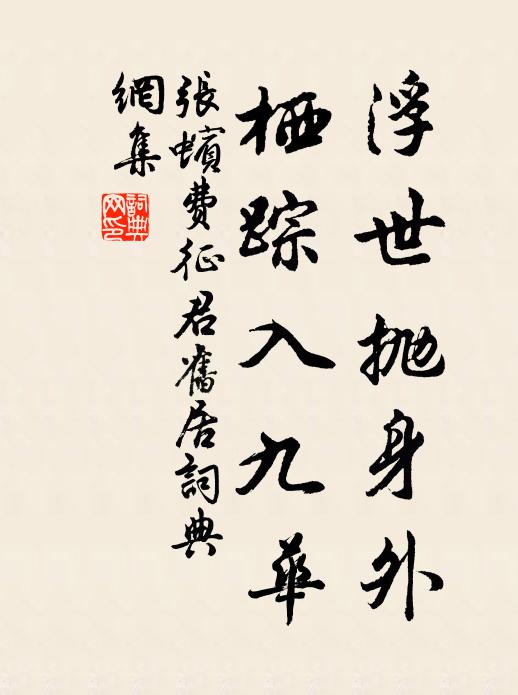 浮世抛身外
栖踪入九華
張蠙費征君舊居詞典
網集
詞典
网印